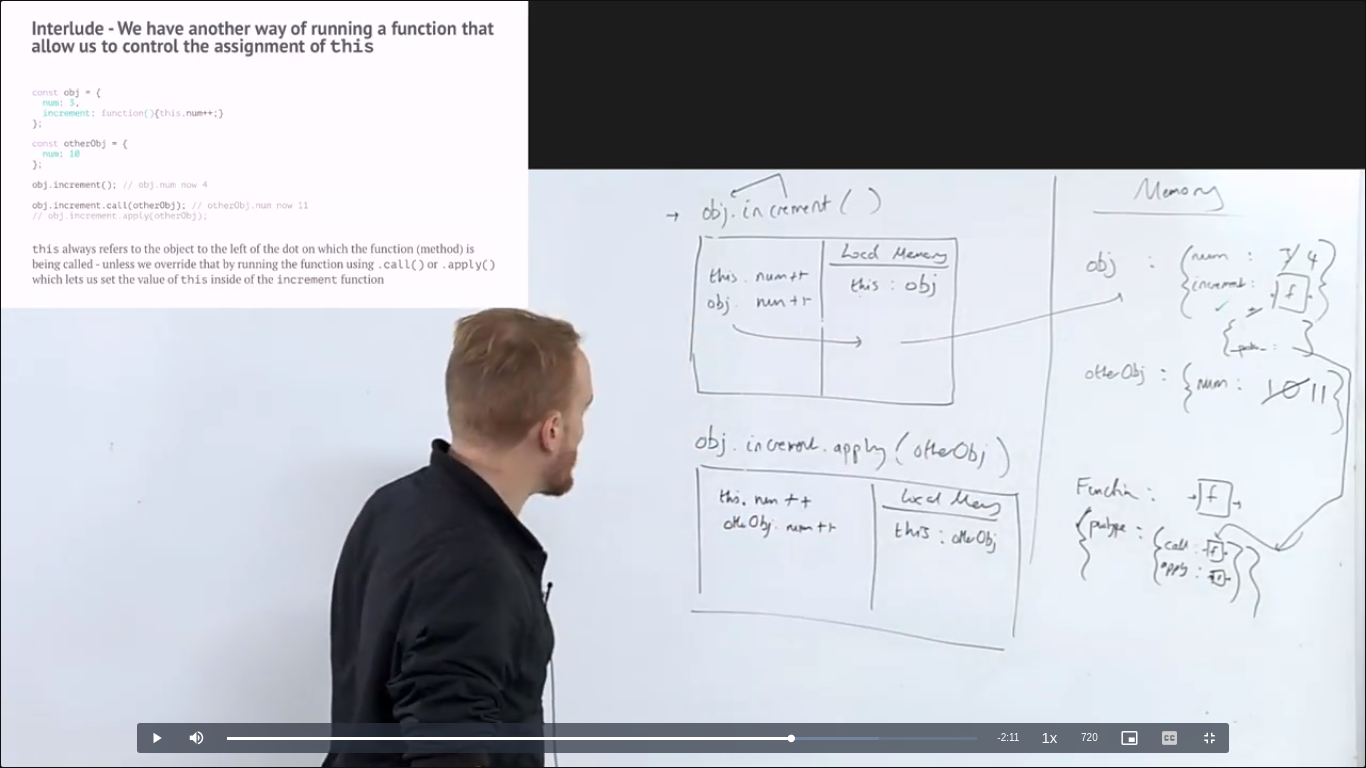 Interlude - We have another way of running a function that
allow us to control the assignment of this
const obj = {
num: 3,
increment: function(){this.num++;}
};
const otherObj = {
num: 10
};
obj.increment(); // obj.num now 4
obj.increment.call(otherObj); // otherObj.num now 11
// obj.increment.apply(otherObj);
this always refers to the object to the left of the dot on which the function (method) is
being called - unless we override that by running the function using .call() or .apply()
which lets us set the value of this inside of the increment function
→ obj.increment( )
Local Memory
this . num++
this : obj
obj. num++
obj.increment.apply(otherObj)
Local Memory
this. num ++
this : otherObj
otherObj. num++
Memory
obj : { num : 3 4
increment: f }
otherObj : { num : 10 11 }
Function : f
{ prototype : { call : f
apply : f } }
-2:11
1x
720
CC